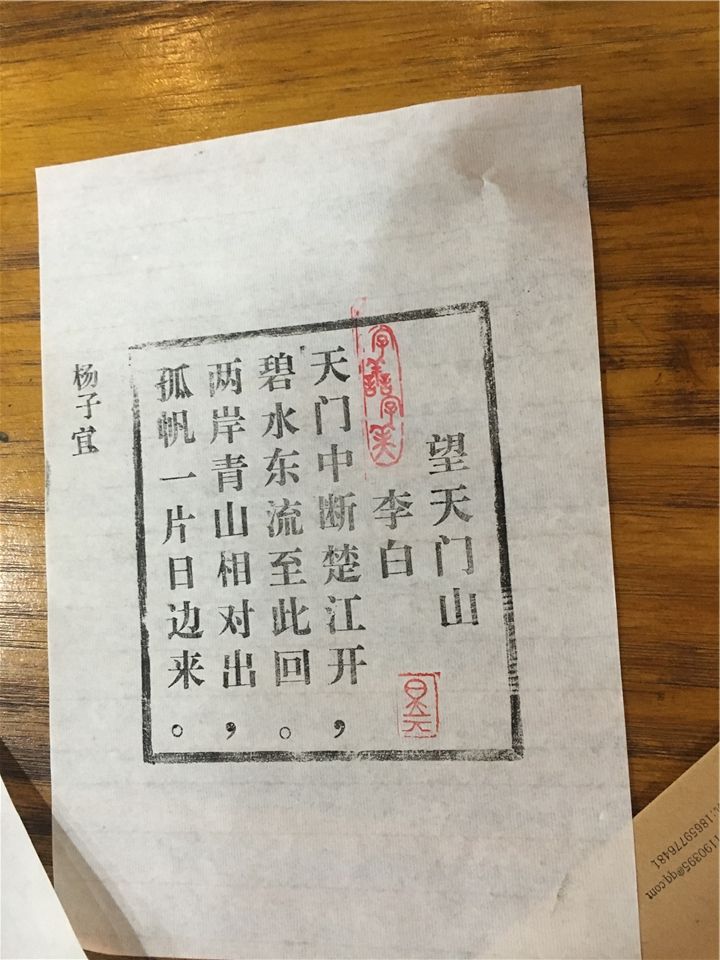 望天门山
李白
天门中断楚江开，
碧水东流至此回。
两岸青山相对出，
孤帆一片日边来。
杨子宜
18659776481
1190395@qq.com